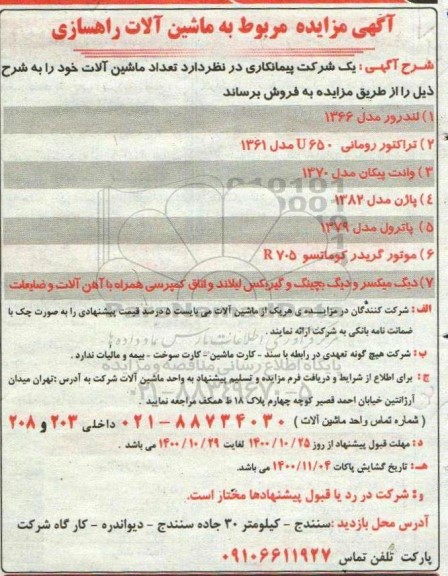 آگهی مزایده مربوط به ماشین آلات راهسازی
شرح آگهی : یک شرکت پیمانکاری در نظردارد تعداد ماشین آلات خود را به شرح
ذیل را از طریق مزایده به فروش برساند
۱) لندرور مدل ۱۳۶۶
۲) تراکتور رومانی U۶۵۰ مدل ۱۳۶۱
۳) وانت پیکان مدل ۱۳۷۰
۴) پاژن مدل ۱۳۸۲
۵) پاترول مدل ۱۳۷۹
۶) موتور گریدر کوماتسو R۷۰۵
۷) دیگ میکسر و دیگ بچینگ و گیربکس لیلاند واتاق کمپرسی همراه با آهن آلات و ضایعات
الف : شرکت کنندگان در مزایــده ی هریک از ماشین آلات می بایست ۵ درصد قیمت پیشنهادی را به صورت چک یا
ضمانت نامه بانکی به شرکت ارائه نمایند .
ب : شرکت هیچ گونه تعهدی در رابطه با سند - کارت ماشین - کارت سوخت - بیمه و مالیات ندارد .
ج : برای اطلاع از شرایط و دریافت فرم مزایده و تسلیم پیشنهاد به واحد ماشین آلات شرکت به آدرس :تهران میدان
آرژانتین خیابان احمد قصیر کوچه چهارم پلاک ۱۸ ط همکف مراجعه نمایید
( شماره تماس واحد ماشین آلات ) ۸۸۷۳۴۰۳۰-۰۲۱ داخلی ۲۰۳ و ۲۰۸
د: مهلت قبول پیشنهاد از روز ۱۴۰۰/۱۰/۲۵ لغایت ۱۴۰۰/۱۰/۲۹ می باشد .
هـ: تاریخ گشایش پاکات ۱۴۰۰/۱۱/۰۴ می باشد.
و: شرکت در رد یا قبول پیشنهادها مختار است.
آدرس محل بازدید :سنندج - کیلومتر ۳۰ جاده سنندج - دیواندره - کار گاه شرکت
پارکت تلفن تماس ۰۹۱۰۶۶۱۱۹۲۷